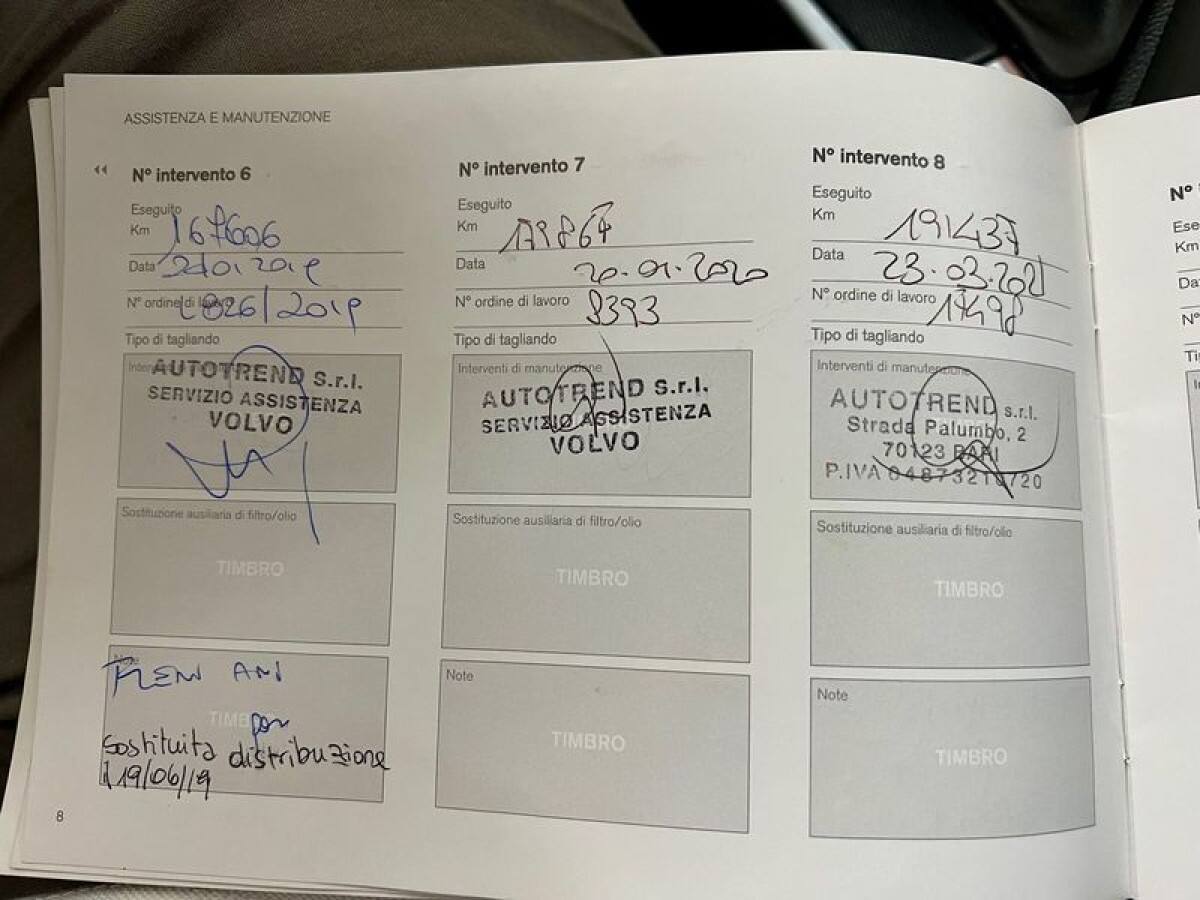 ASSISTENZA E MANUTENZIONE
N° intervento 6
Eseguito
Km 167606
Data 2019
N° ordine di lavoro 1826/2019
Tipo di tagliando
AUTOTREND S.r.l.
SERVIZIO ASSISTENZA
VOLVO
Sostituzione ausiliaria di filtro/olio
TIMBRO
Note
FRENI
TIMBRO
Sostituita distribuzione
19/06/19
N° intervento 7
Eseguito
Km 179867
Data 20.01.2020
N° ordine di lavoro 8393
Tipo di tagliando
Interventi di manutenzione
AUTOTREND S.r.l.
SERVIZIO ASSISTENZA
VOLVO
Sostituzione ausiliaria di filtro/olio
TIMBRO
Note
TIMBRO
N° intervento 8
Eseguito
Km 191437
Data 23.03.2021
N° ordine di lavoro 17498
Tipo di tagliando
Interventi di manutenzione
AUTOTREND s.r.l.
Strada Palumbo, 2
70123 BARI
P.IVA
Sostituzione ausiliaria di filtro/olio
TIMBRO
Note
TIMBRO
8
N°
Km
N°